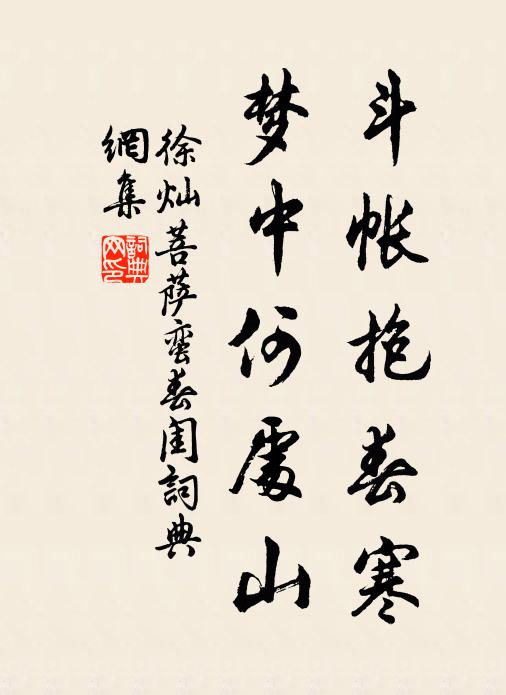 斗帐抱春寒
梦中何處山
徐灿菩萨蛮春闺詞典
網集
詞典
网印